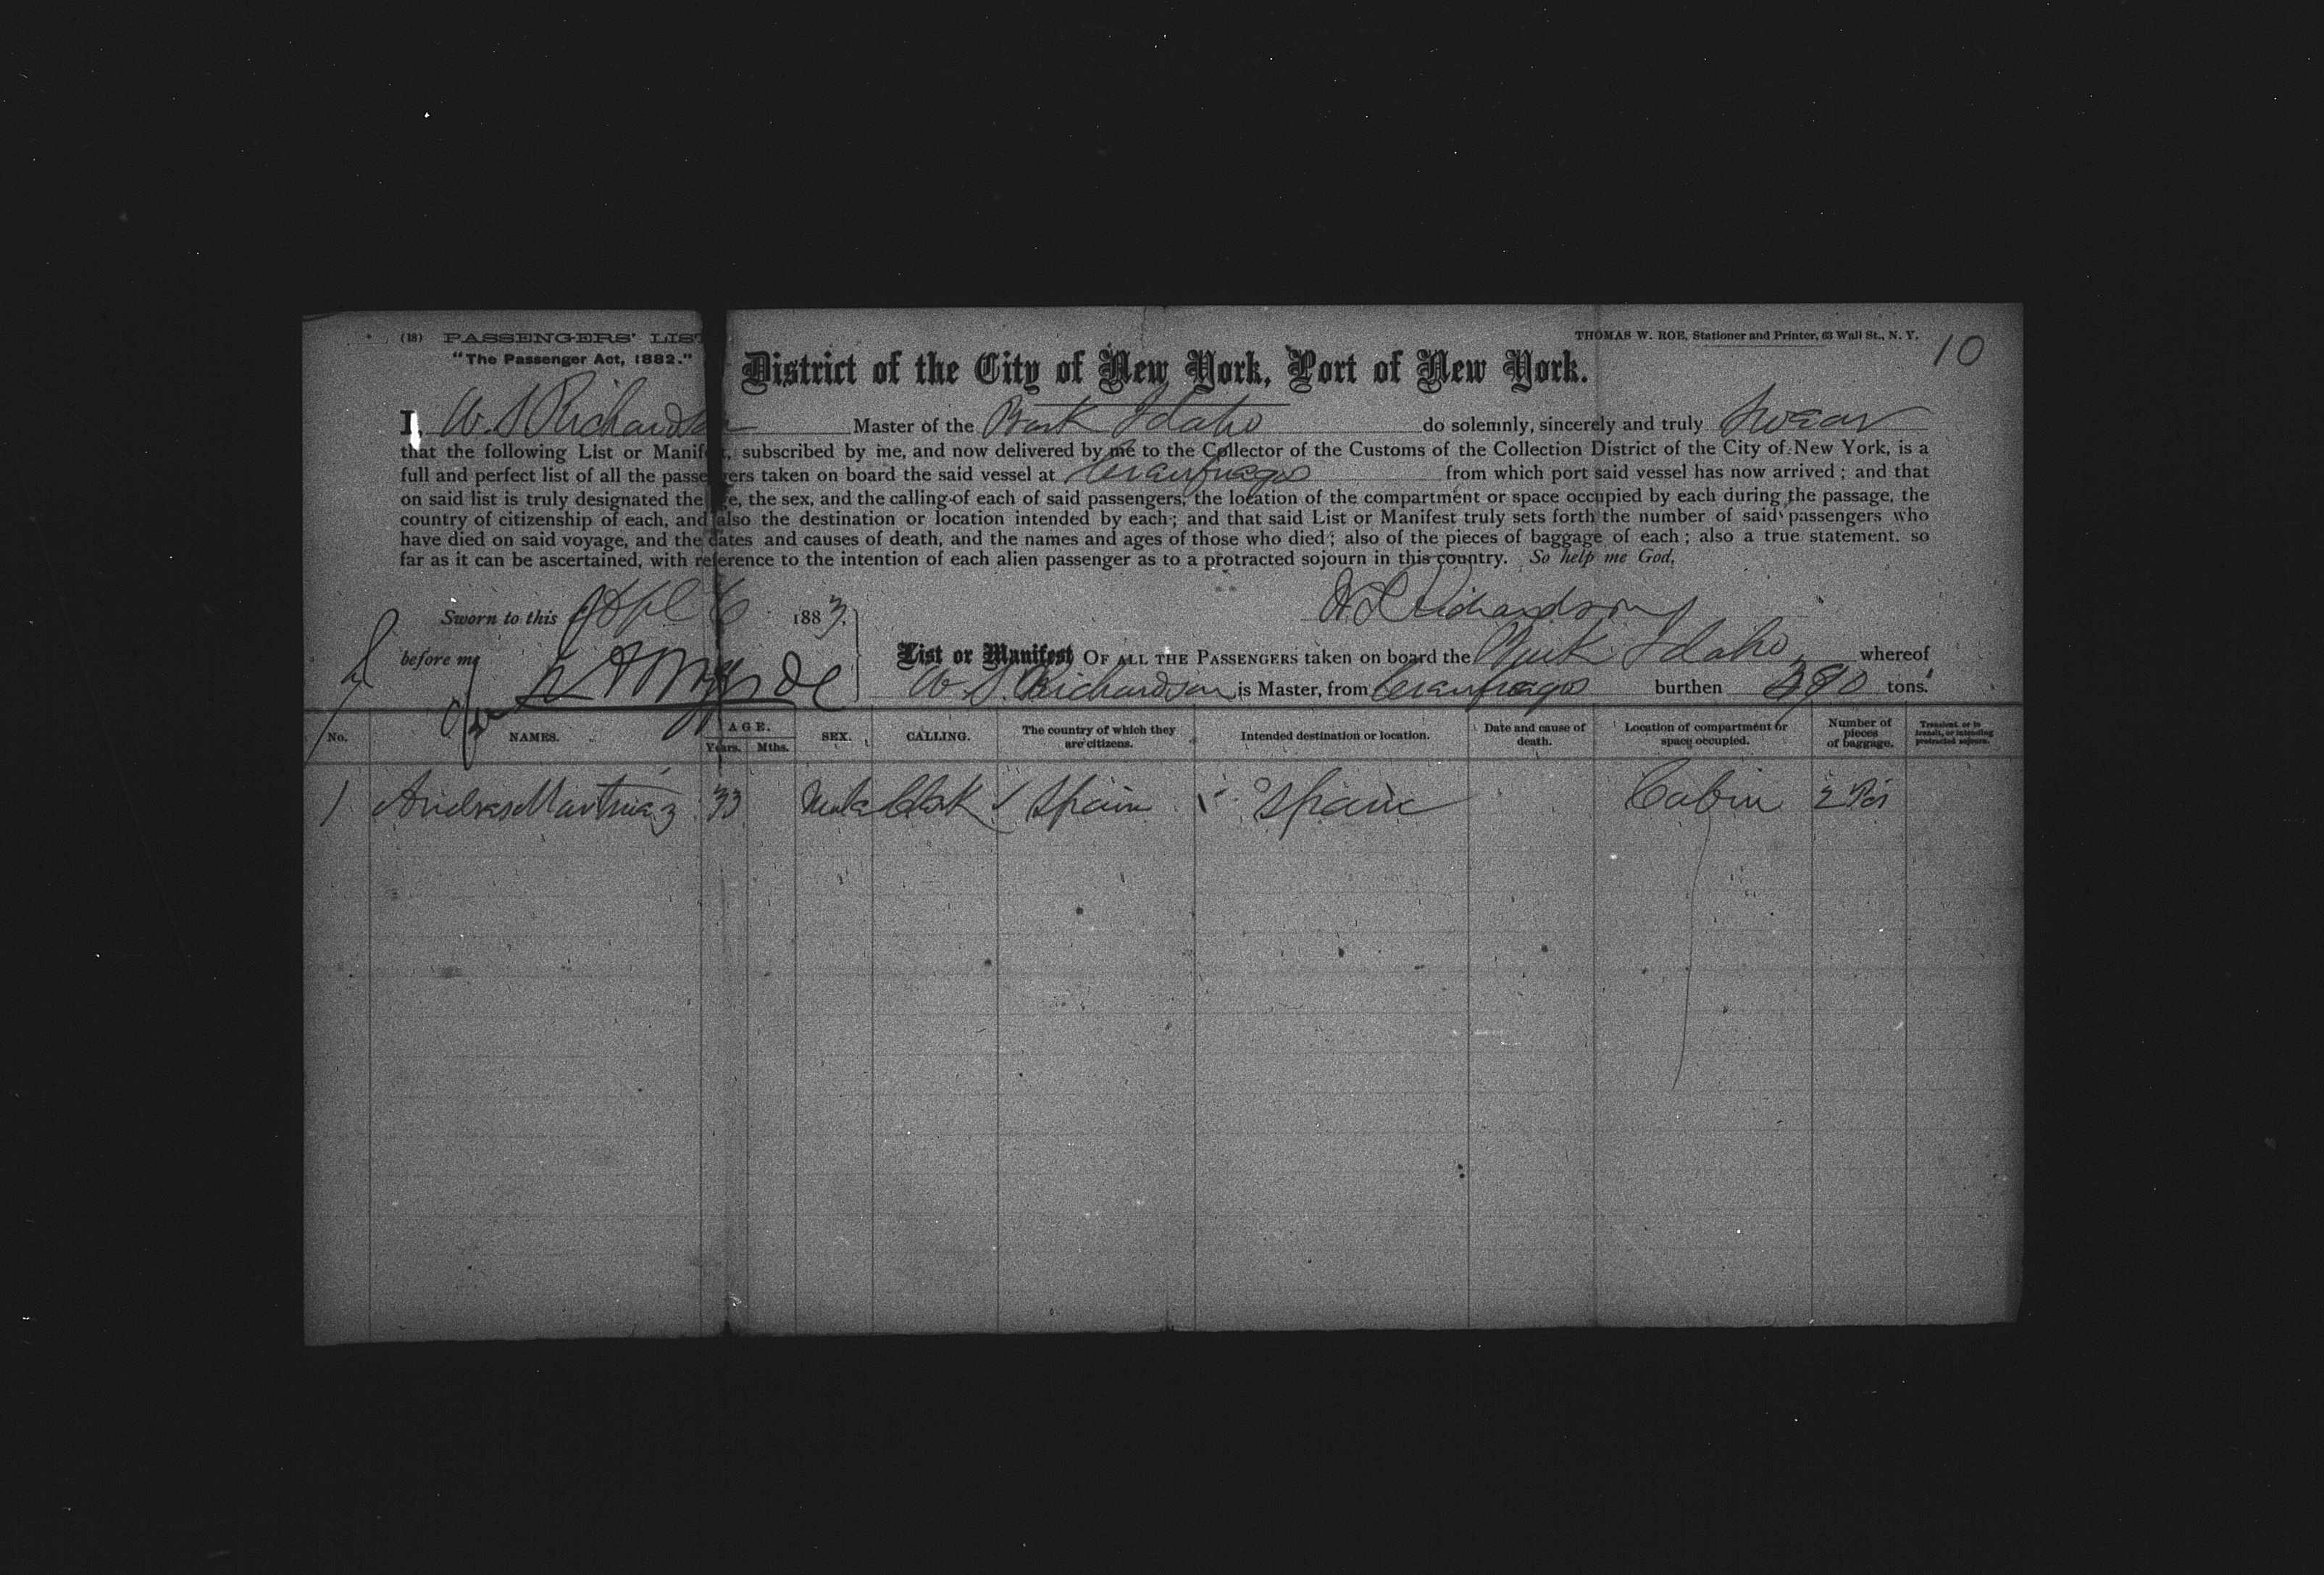 (18) PASSENGERS' LIST
"The Passenger Act, 1882."
THOMAS W. ROE, Stationer and Printer, 63 Wall St., N. Y.
10
District of the City of New York, Port of New York.
I, W. S Richardson Master of the Bark Idaho do solemnly, sincerely and truly Swear
that the following List or Manifest, subscribed by me, and now delivered by me to the Collector of the Customs of the Collection District of the City of New York, is a
full and perfect list of all the passengers taken on board the said vessel at Cienfuegos from which port said vessel has now arrived ; and that
on said list is truly designated the age, the sex, and the calling of each of said passengers, the location of the compartment or space occupied by each during the passage, the
country of citizenship of each, and also the destination or location intended by each ; and that said List or Manifest truly sets forth the number of said passengers who
have died on said voyage, and the dates and causes of death, and the names and ages of those who died ; also of the pieces of baggage of each ; also a true statement, so
far as it can be ascertained, with reference to the intention of each alien passenger as to a protracted sojourn in this country. So help me God.
Sworn to this Apl 6 1883.
W. S Richardson
before me
List or Manifest OF ALL THE PASSENGERS taken on board the Bark Idaho, whereof
W. S. Richardson is Master, from Cienfuegos burthen 390 tons.
No. NAMES. AGE. Years. Mths. SEX. CALLING. The country of which they are citizens. Intended destination or location. Date and cause of death. Location of compartment or space occupied. Number of pieces of baggage. Transient, or in transit, or intending protracted sojourn.
1 Andres Martinez 33 Male Clerk Spain Spain Cabin 2 Pcs